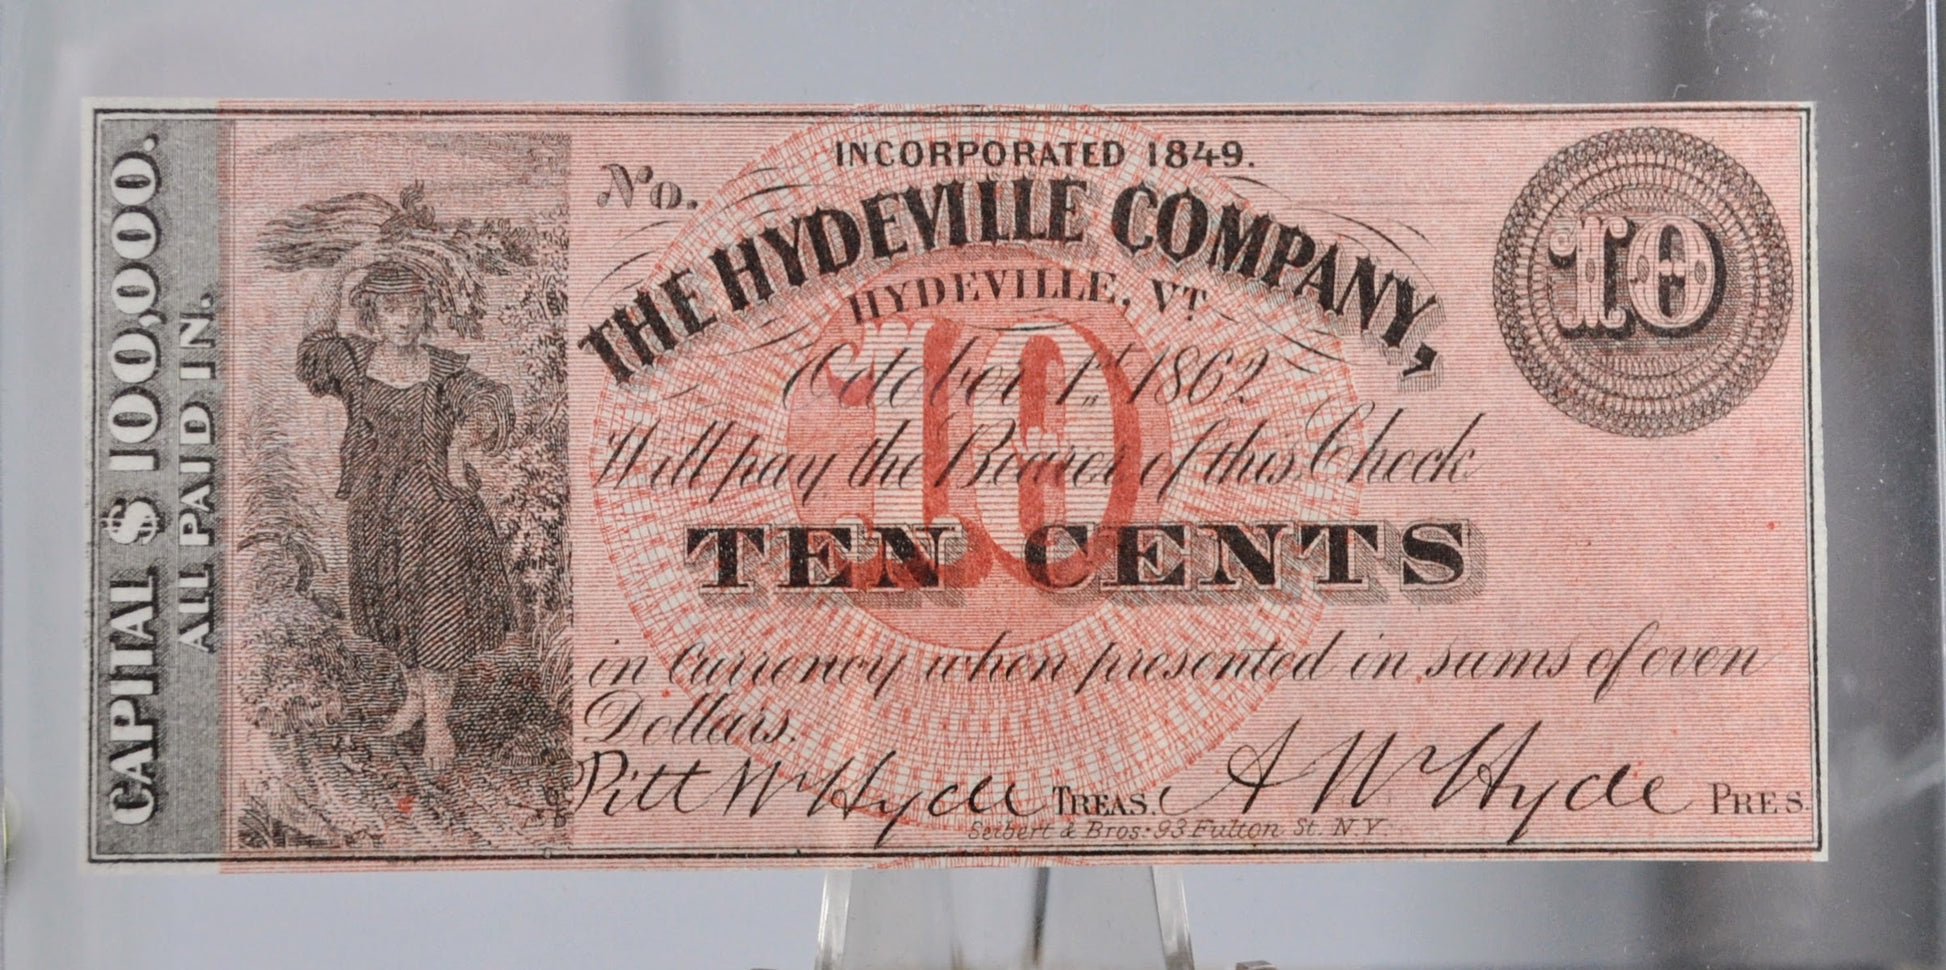 CAPITAL $100,000.
ALL PAID IN.
INCORPORATED 1849.
No.
THE HYDEVILLE COMPANY,
HYDEVILLE, VT.
10
October 1st 1862
10
Will pay the Bearer of this Check
TEN CENTS
in Currency when presented in sums of even
Dollars.
Pitt W Hyde TREAS. A W Hyde PRES.
Seibert & Bros: 93 Fulton St. N.Y.